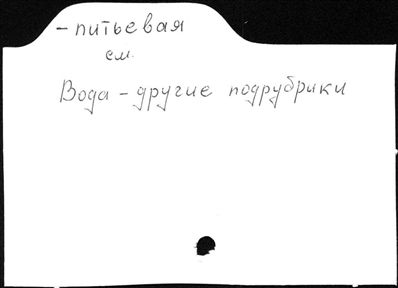 - питьевая
см.
Вода - другие подрубрики